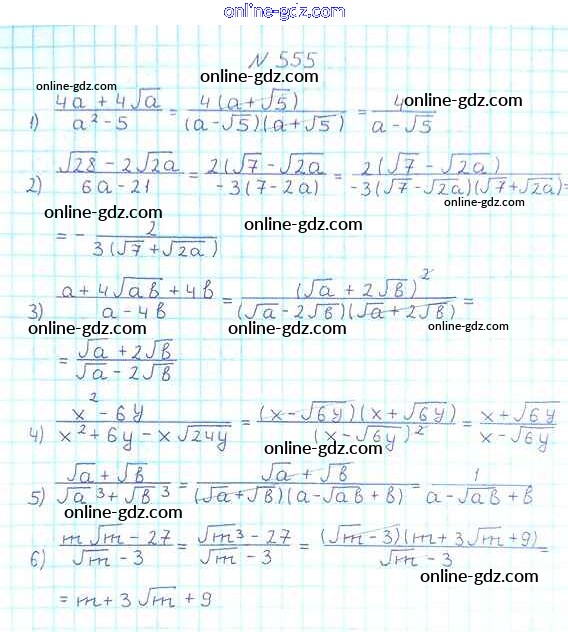 online-gdz.com
№ 555
online-gdz.com
online-gdz.com
1) (4a + 4√a)/(a² - 5) = 4(a+√5)/((a-√5)(a+√5)) = 4/(a-√5)
online-gdz.com
2) (√28 - 2√2a)/(6a - 21) = 2(√7 - √2a)/(-3(7-2a)) = 2(√7 - √2a)/(-3(√7-√2a)(√7+√2a)) =
online-gdz.com
online-gdz.com
= - 2/(3(√7+√2a))
online-gdz.com
3) (a + 4√ab + 4b)/(a - 4b) = (√a + 2√b)²/((√a - 2√b)(√a + 2√b)) =
online-gdz.com
online-gdz.com
= (√a + 2√b)/(√a - 2√b)
online-gdz.com
4) (x² - 6y)/(x² + 6y - x√24y) = (x-√6y)(x+√6y)/(x-√6y)² = (x+√6y)/(x-√6y)
online-gdz.com
5) (√a + √b)/(√a³ + √b³) = (√a + √b)/((√a+√b)(a-√ab+b)) = 1/(a-√ab+b)
online-gdz.com
online-gdz.com
6) (m√m - 27)/(√m - 3) = (√m³ - 27)/(√m - 3) = (√m-3)(m+3√m+9)/(√m - 3) =
online-gdz.com
= m+3√m+9